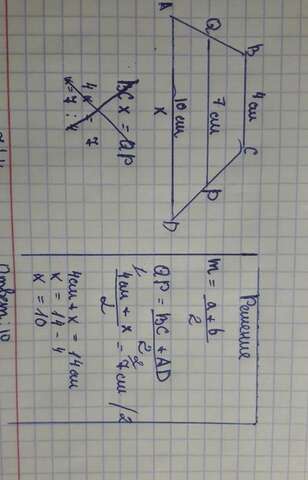 A
Q
B
4 см
7 см
10 см
x
C
P
D
BC x = QP
4x = 7
x = 7 : 4
Решение
m = a + b / 2
QP = BC + AD / 2
4см + x / 2 = 7 см / 2
4см + x = 14 см
x = 14 - 4
x = 10
Ответ: 10